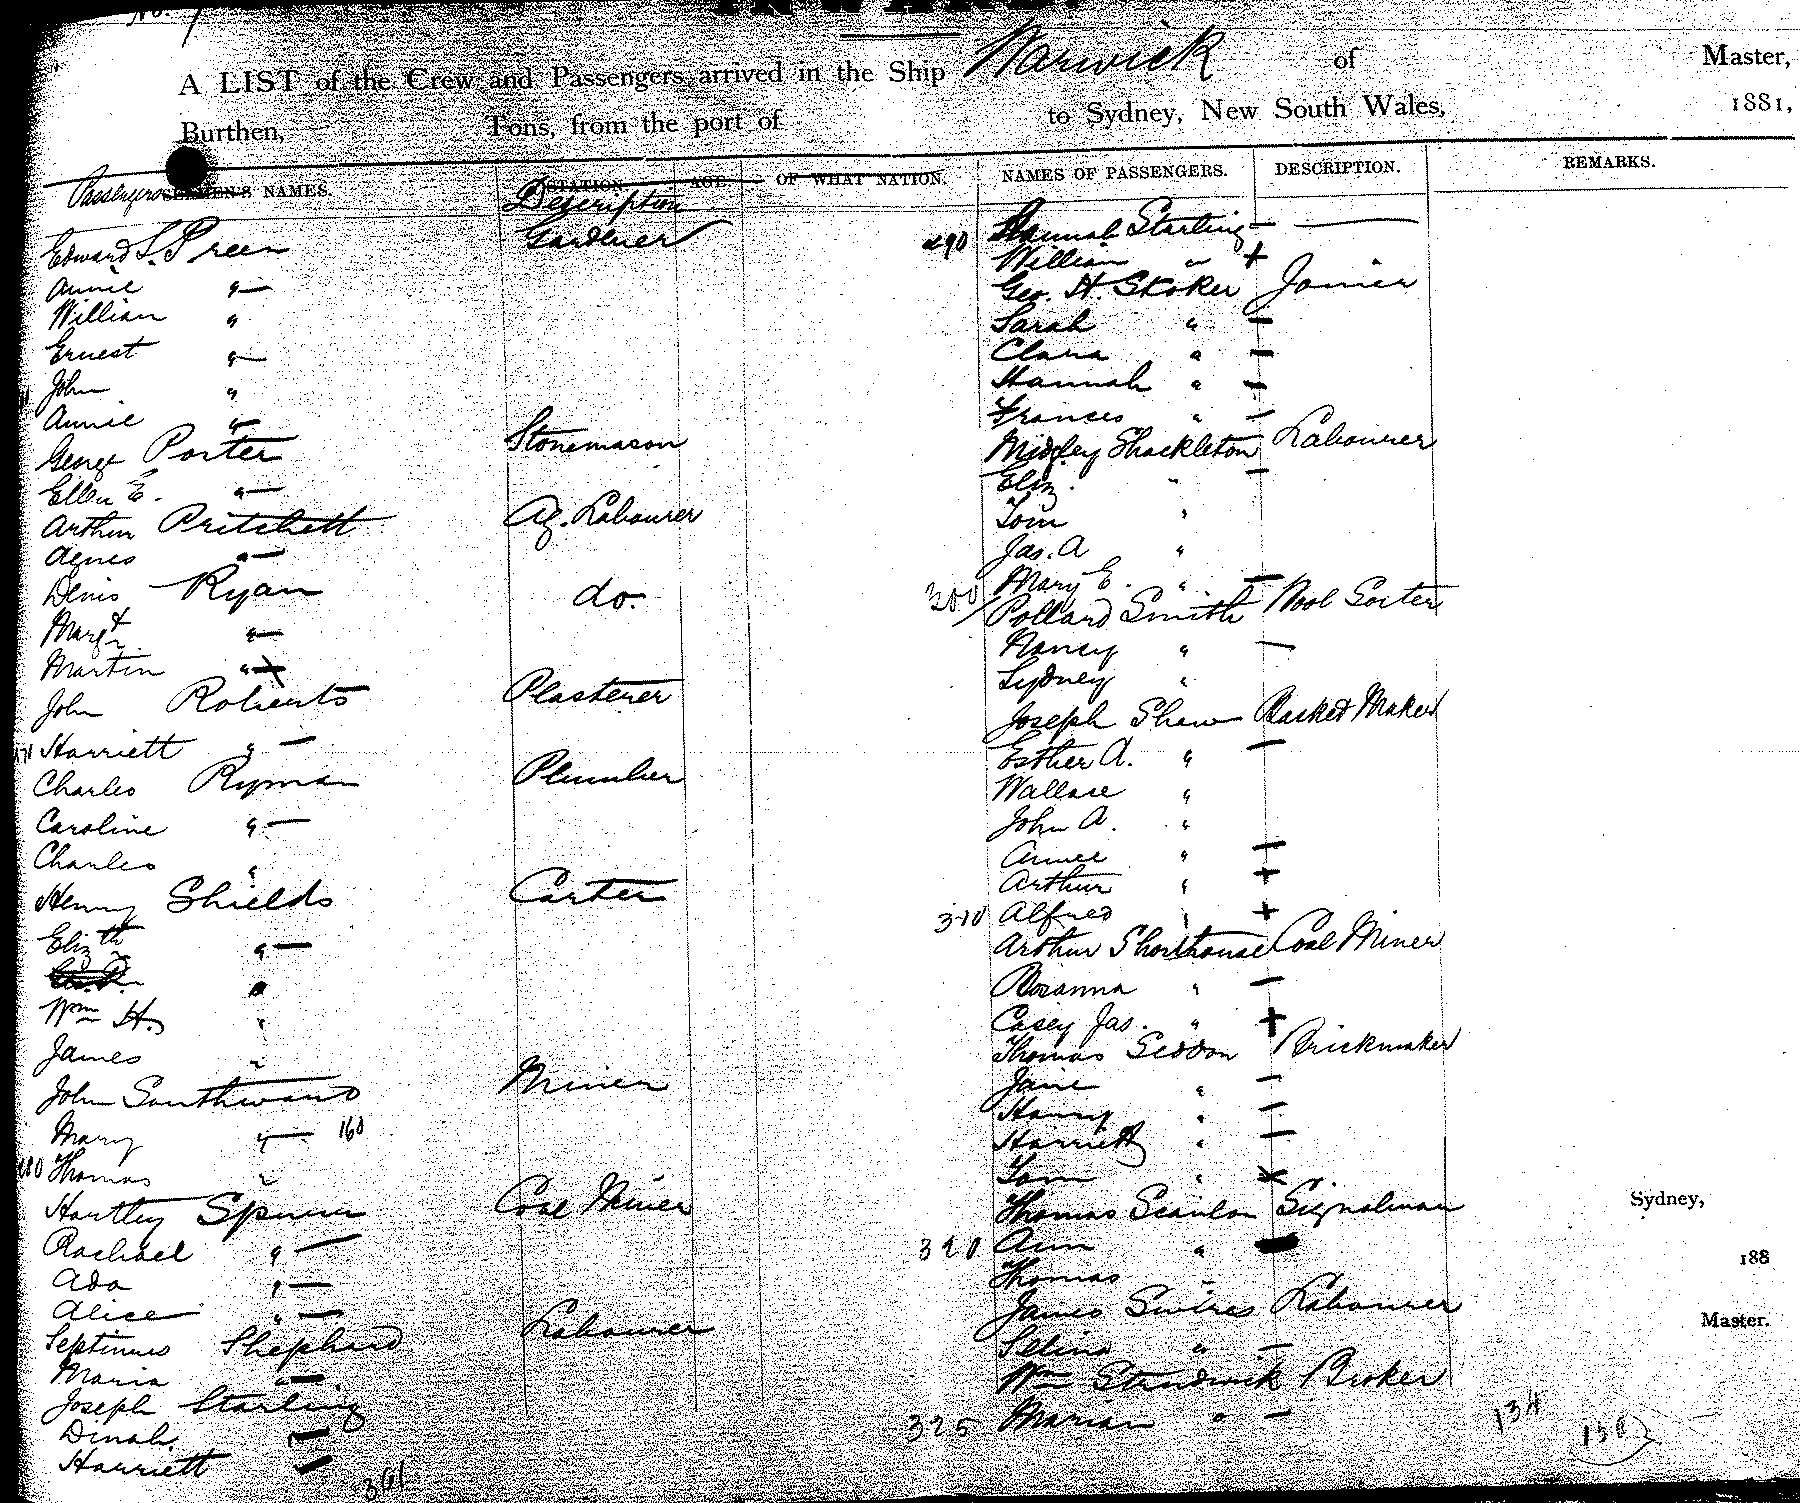 No.
INWARD.
A LIST of the Crew and Passengers arrived in the Ship Warwick of Master,
Burthen, Tons, from the port of to Sydney, New South Wales, 1881,
Passengers SEAMEN'S NAMES. STATION Description AGE. OF WHAT NATION.
Edward S. Preen Gardener
Annie " —
William "
Ernest " —
John "
Annie " —
George Porter Stonemason
Ellen E. " —
Arthur Pritchett Ag. Labourer
Agnes " —
Denis Ryan do.
Margt " —
Martin "
John Roberts Plasterer
Harriett " —
Charles Ryman Plumber
Caroline " —
Charles "
Henry Shields Carter
Elizth " —
Wm H. "
James "
John Southward Miner
Mary " — 160
Thomas "
Hartley Coal Miner
Rachael " —
Ada " —
Alice " —
Septimus Shepherd Labourer
Maria " —
Joseph Starling
Dinah —
Harriett —
301
NAMES OF PASSENGERS. DESCRIPTION. REMARKS.
Hannah Starling — —
290 William " +
Geo. H. Skoker Joiner
Sarah " —
Clara " —
Hannah " —
Frances " —
Midgley Shackleton Labourer
Eliz. " —
Tom "
Jas. A "
Mary E. " —
300 Pollard Smith Wool Sorter
Nancy " —
Sydney "
Joseph Shaw Basket Maker
Esther A. " —
Wallace "
John A. "
Annee " —
Arthur " +
310 Alfred " +
Arthur Shorthouse Coal Miner
Rosanna " —
Casey Jas. " +
Thomas Seddon Brickmaker
Jane " —
Henry " —
Harriett " —
Tom " ×
Thomas Scanlon Signalman
320 Ann "
Thomas "
James Labourer
Selina " —
Wm Broker
325 Marian " —
134
Sydney,
188
Master.